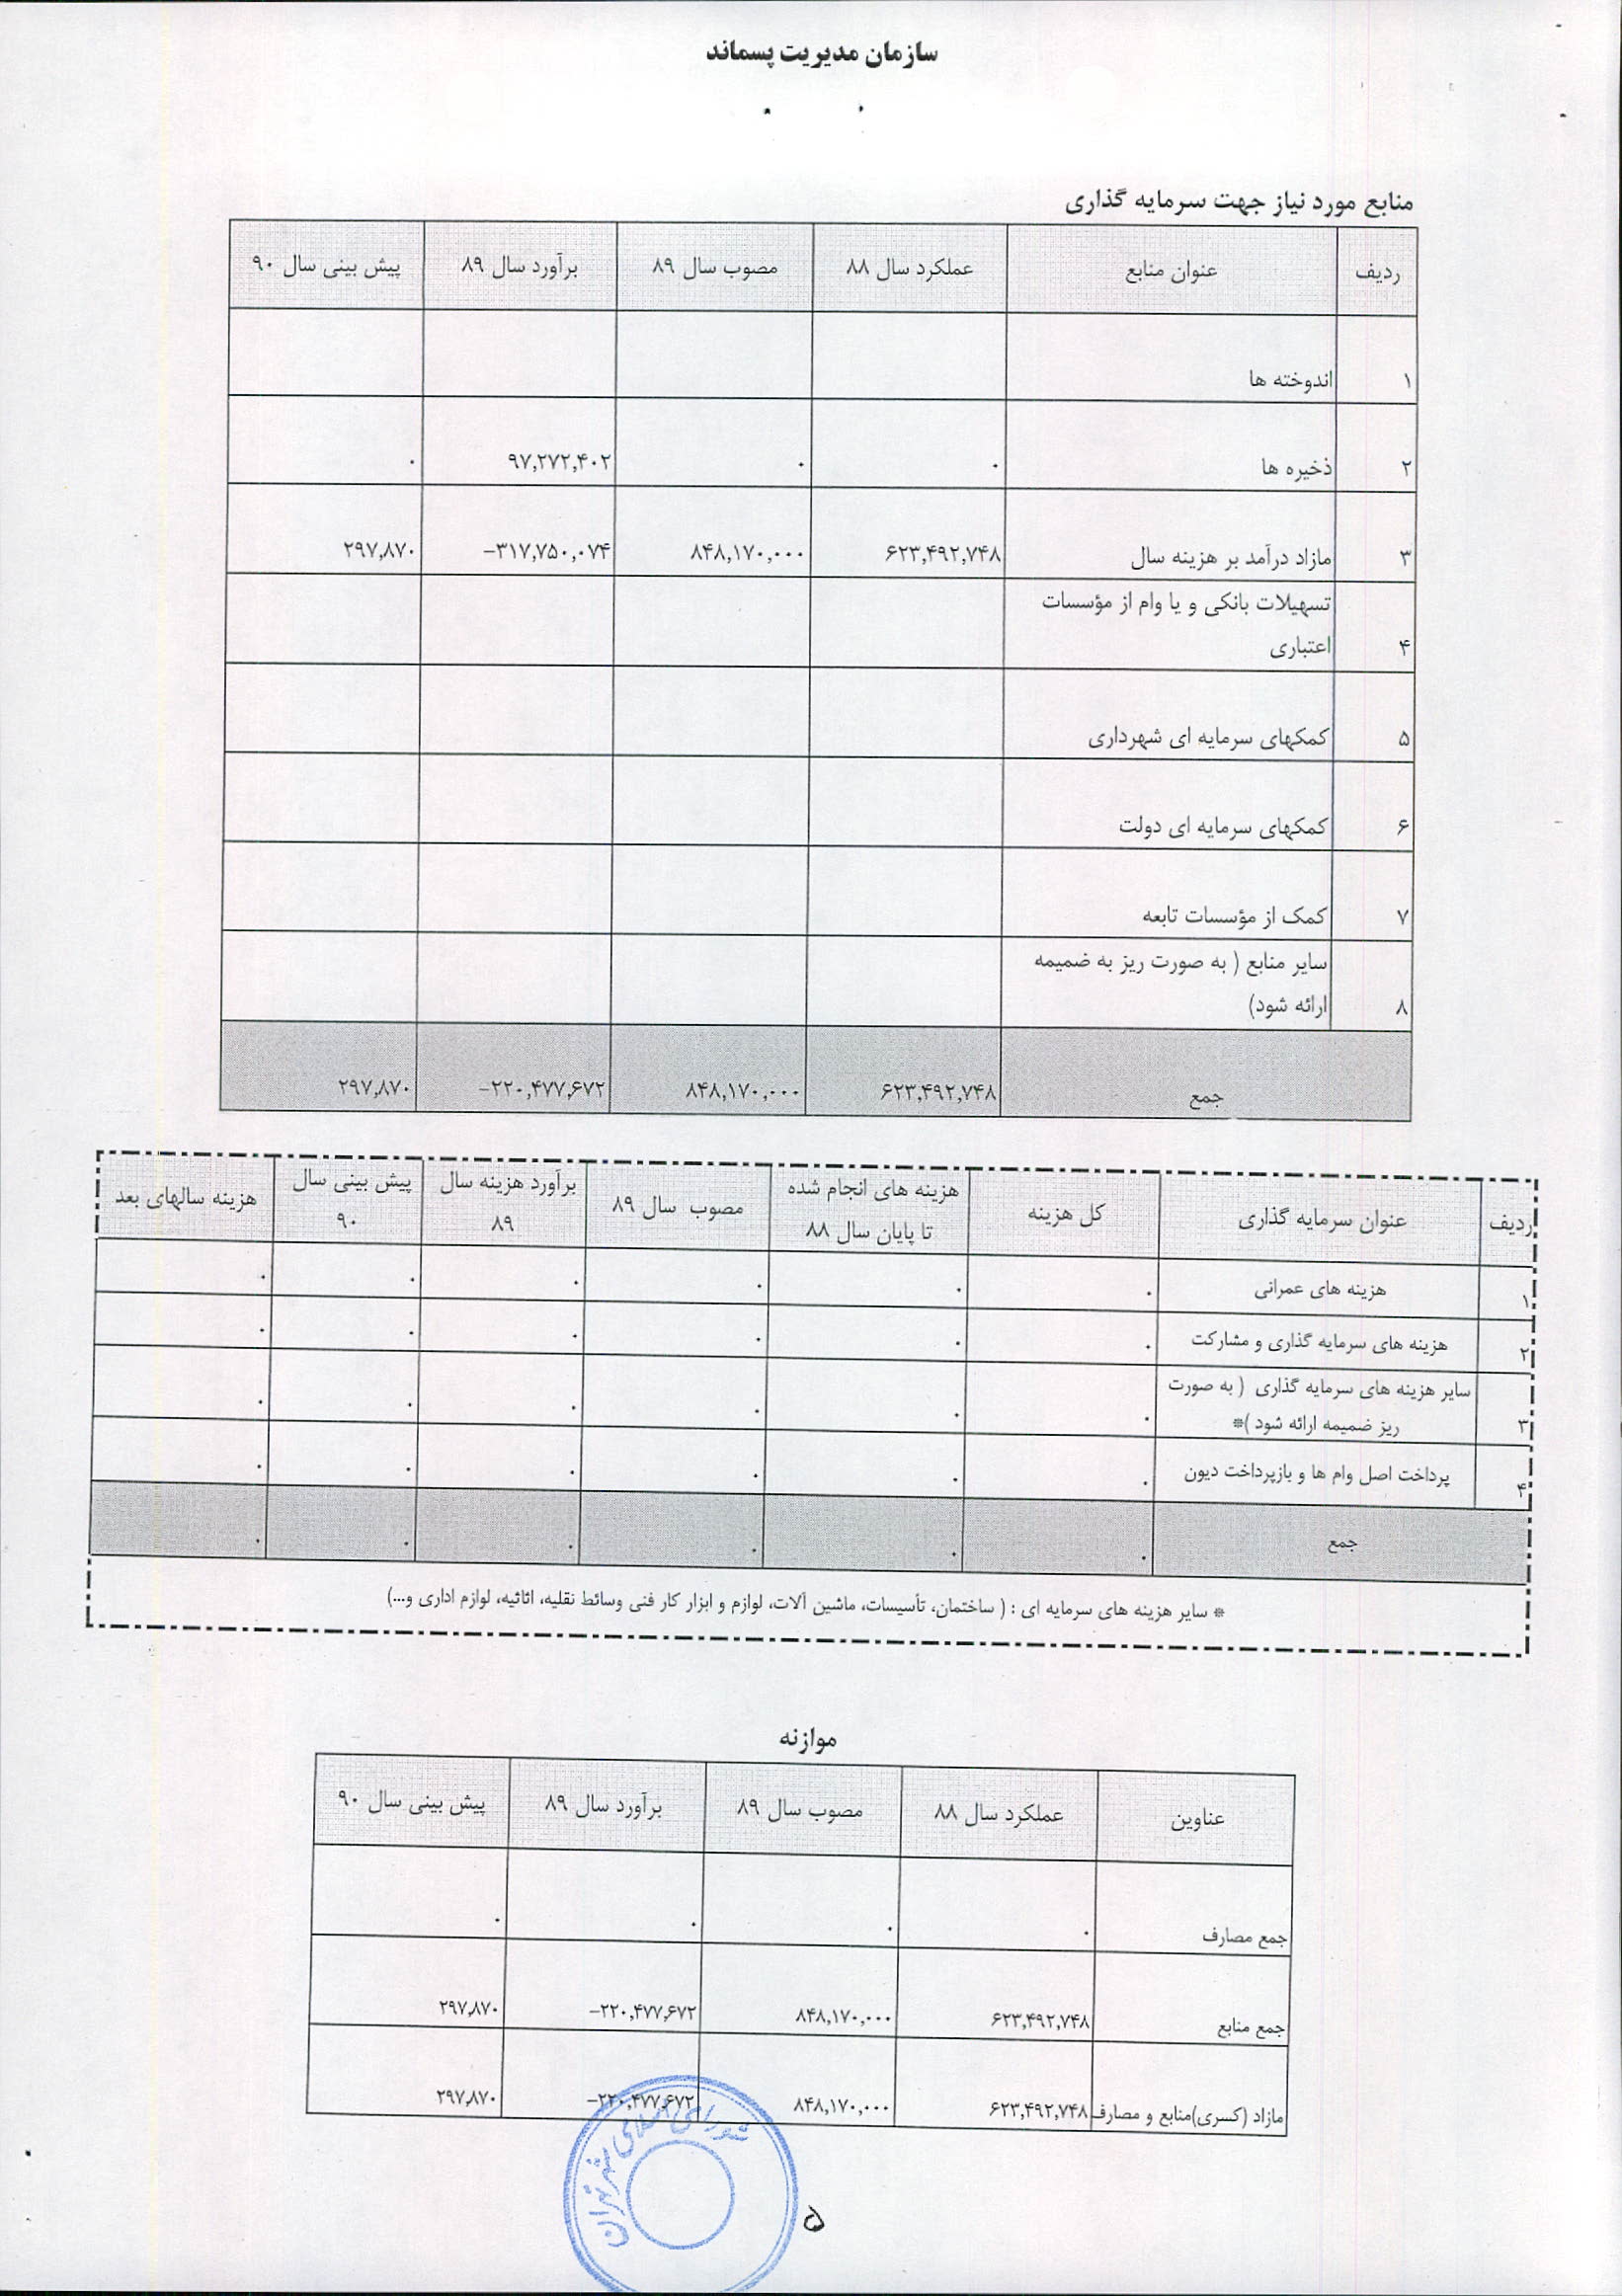 سازمان مدیریت پسماند
منابع مورد نیاز جهت سرمایه گذاری
ردیف عنوان منابع عملکرد سال ۸۸ مصوب سال ۸۹ برآورد سال ۸۹ پیش بینی سال ۹۰
۱ اندوخته ها
۲ ذخیره ها ۰ ۰ ۹۷,۲۷۲,۴۰۲ ۰
۳ مازاد درآمد بر هزینه سال ۶۲۳,۴۹۲,۷۴۸ ۸۴۸,۱۷۰,۰۰۰ -۳۱۷,۷۵۰,۰۷۴ ۲۹۷,۸۷۰
تسهیلات بانکی و یا وام از مؤسسات
۴ اعتباری
۵ کمکهای سرمایه ای شهرداری
۶ کمکهای سرمایه ای دولت
۷ کمک از مؤسسات تابعه
سایر منابع ( به صورت ریز به ضمیمه
۸ ارائه شود)
جمع ۶۲۳,۴۹۲,۷۴۸ ۸۴۸,۱۷۰,۰۰۰ -۲۲۰,۴۷۷,۶۷۲ ۲۹۷,۸۷۰
ردیف عنوان سرمایه گذاری کل هزینه هزینه های انجام شده مصوب سال ۸۹ برآورد هزینه سال پیش بینی سال هزینه سالهای بعد
تا پایان سال ۸۸ ۸۹ ۹۰
۱ هزینه های عمرانی ۰ ۰ ۰ ۰ ۰ ۰
۲ هزینه های سرمایه گذاری و مشارکت ۰ ۰ ۰ ۰ ۰ ۰
سایر هزینه های سرمایه گذاری ( به صورت
۳ ریز ضمیمه ارائه شود )* ۰ ۰ ۰ ۰ ۰ ۰
۴ پرداخت اصل وام ها و بازپرداخت دیون ۰ ۰ ۰ ۰ ۰ ۰
جمع ۰ ۰ ۰ ۰ ۰ ۰
* سایر هزینه های سرمایه ای : ( ساختمان، تأسیسات، ماشین آلات، لوازم و ابزار کار فنی وسائط نقلیه، اثاثیه، لوازم اداری و...)
موازنه
عناوین عملکرد سال ۸۸ مصوب سال ۸۹ برآورد سال ۸۹ پیش بینی سال ۹۰
جمع مصارف ۰ ۰ ۰ ۰
جمع منابع ۶۲۳,۴۹۲,۷۴۸ ۸۴۸,۱۷۰,۰۰۰ -۲۲۰,۴۷۷,۶۷۲ ۲۹۷,۸۷۰
مازاد (کسری)منابع و مصارف ۶۲۳,۴۹۲,۷۴۸ ۸۴۸,۱۷۰,۰۰۰ -۲۲۰,۴۷۷,۶۷۲ ۲۹۷,۸۷۰
شورای اسلامی شهر تهران
۵